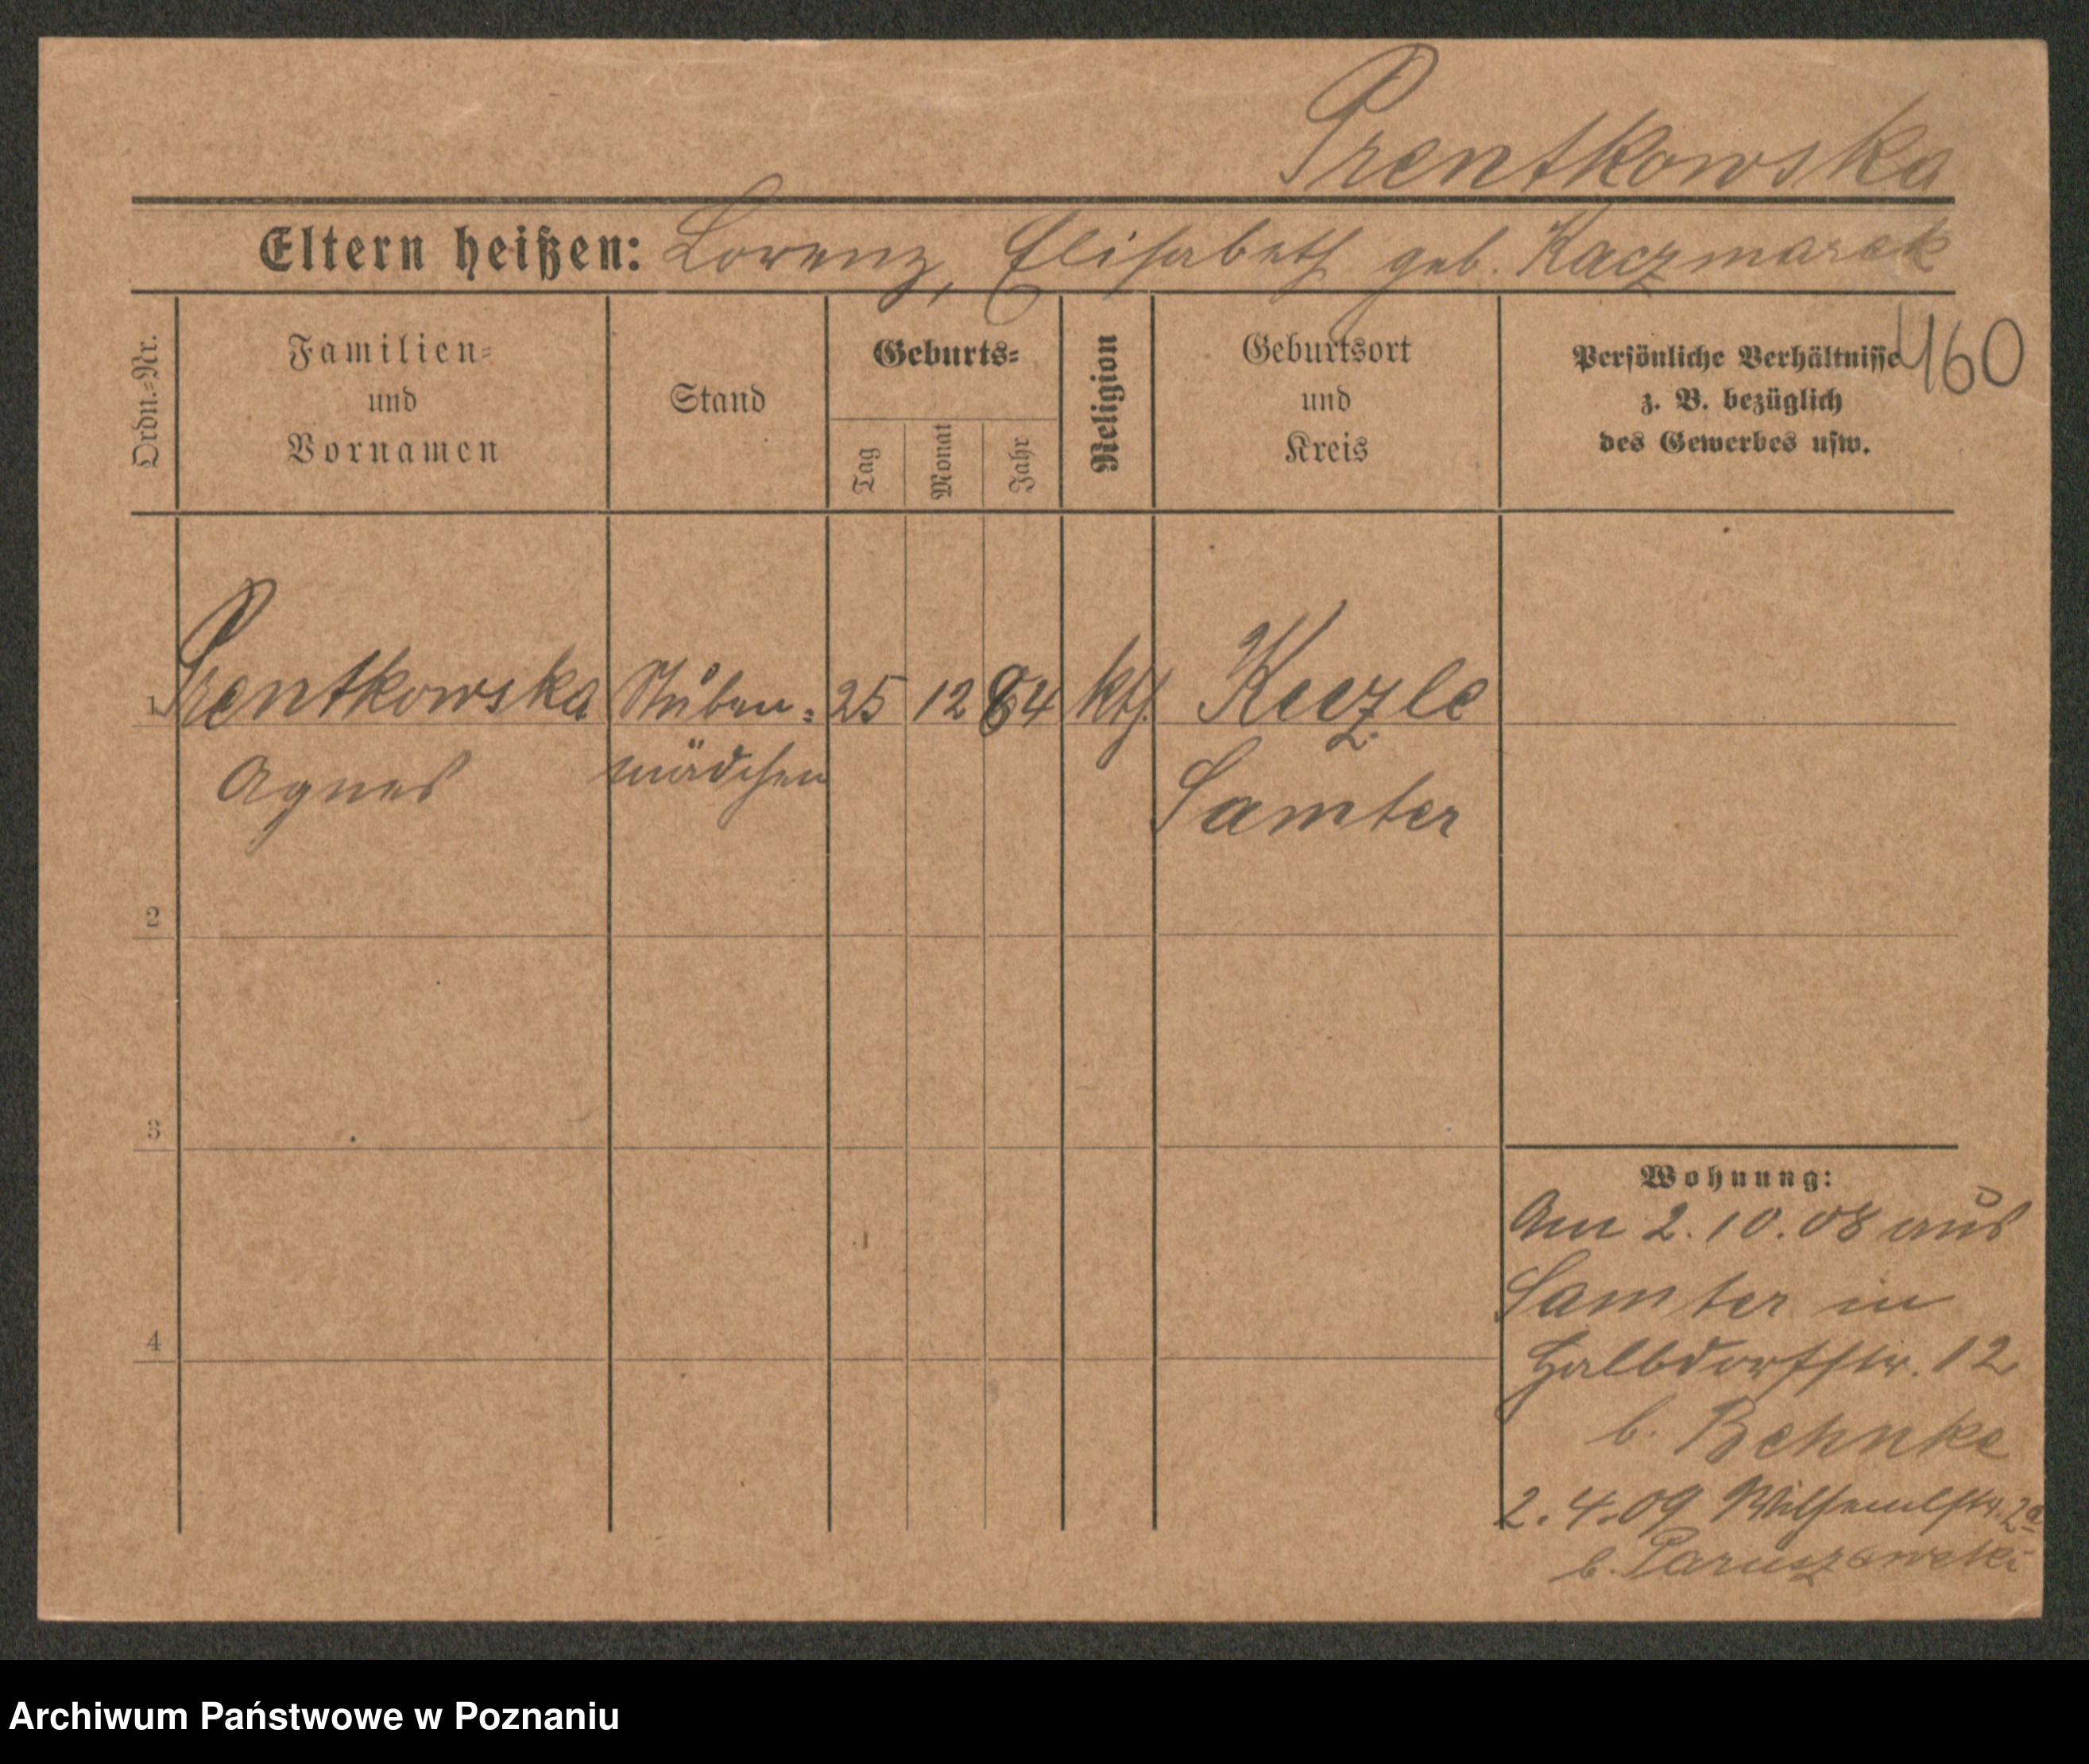 Prentkowska
Eltern heißen: Lorenz, Elisabeth geb. Kaczmarek
460
Ordn.-Nr.
Familien-
und
Vornamen
Stand
Geburts-
Tag
Monat
Jahr
Religion
Geburtsort
und
Kreis
Persönliche Verhältnisse
z. B. bezüglich
des Gewerbes usw.
1 Prentkowska Stuben- 25 12 84 kth.
Agnes mädchen Samter
2
3
4
Wohnung:
Am 2.10.08 aus
Samter in
Halbdorfstr. 12
b. Behnke
2.4.09 Wilhelmstr. 2a
b.